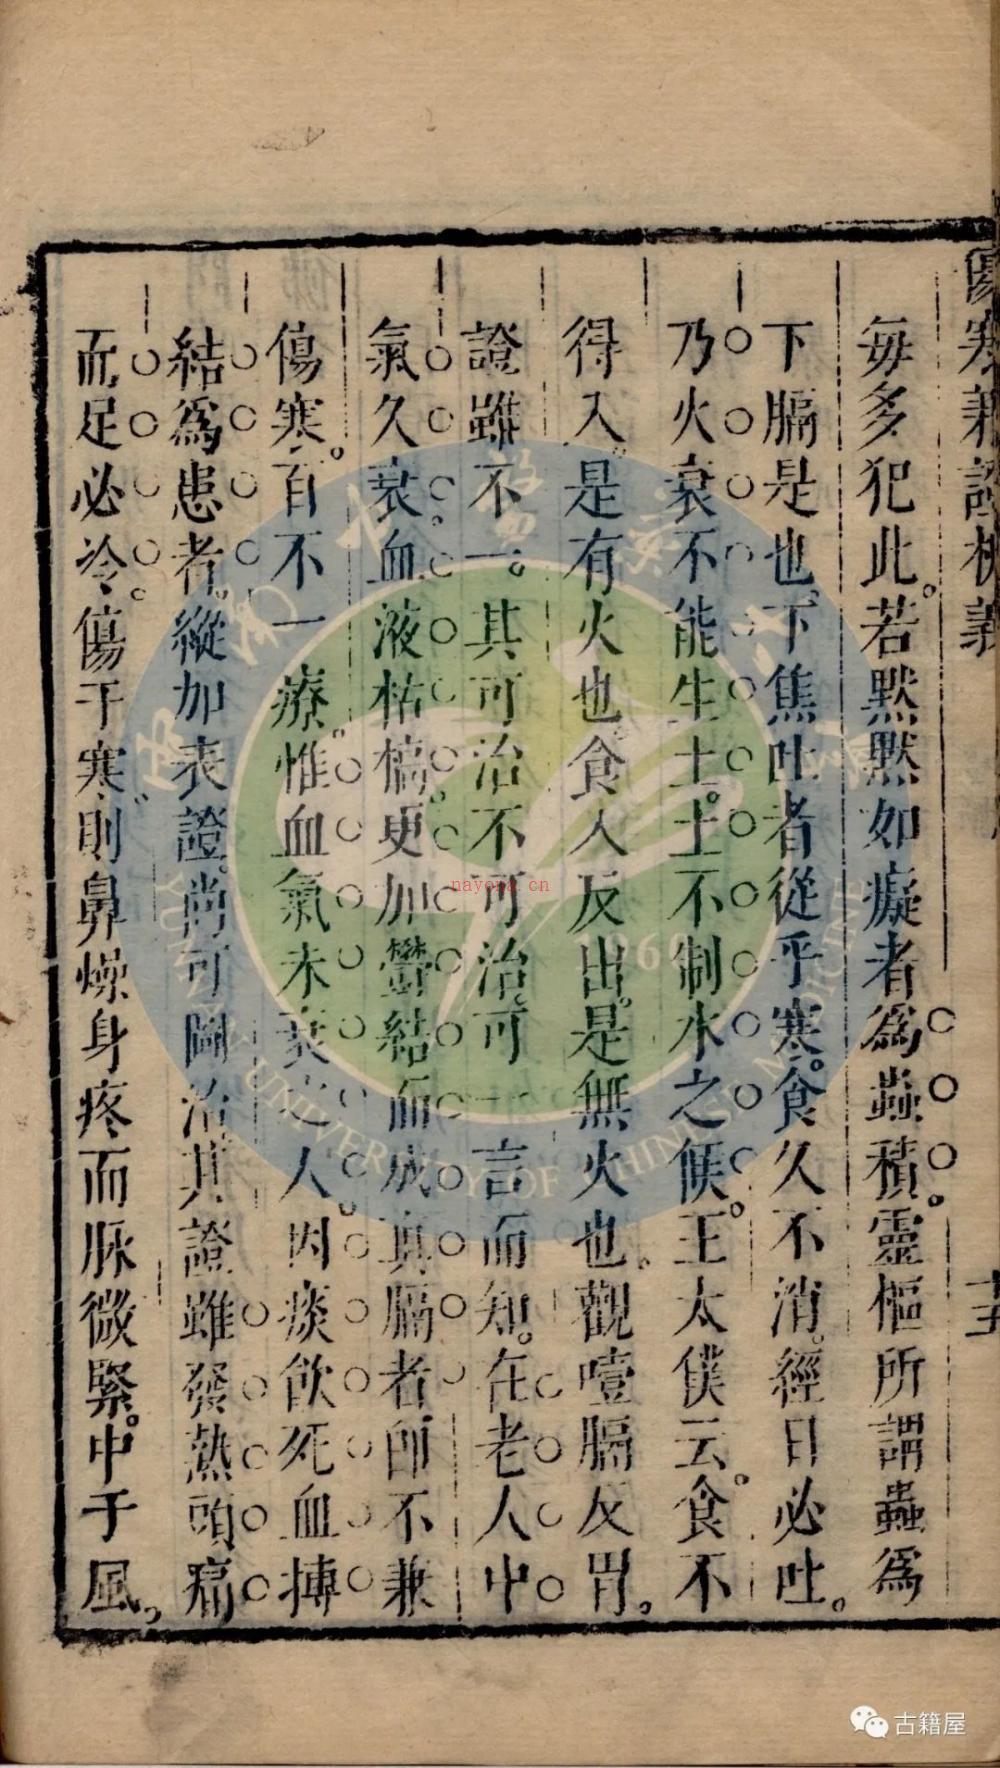 傷寒兼證析義
十五
每多犯此。若默默如癡者為蟲積。靈樞所謂蟲為
下膈是也。下焦吐者從乎寒。食久不消。經日必吐。
乃火衰不能生土。土不制水之候。王太僕云。食不
得入。是有火也。食入反出。是無火也。觀噎膈反胃。
證雖不一。其可治不可治。可一言而知。在老人中
氣久衰。血液枯槁。更加鬱結而成真膈者。即不兼
傷寒。百不一療。惟血氣未衰之人。因痰飲死血摶
結為患者。縱加表證。尚可圖治。其證雖發熱頭痛
而足必冷。傷于寒。則鼻燥身疼而脉微緊。中于風。
YUNNAN UNIVERSITY OF CHINESE MEDICINE
1960
nayona.cn
古籍屋